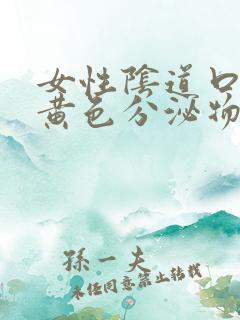 女性陰道口
黄色分泌物
孫一夫
未经同意禁止转载